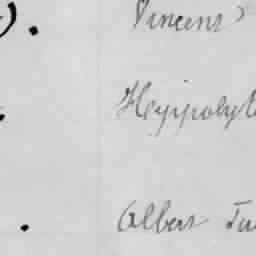 ). Vincent
. Hyppolyt
. Albert